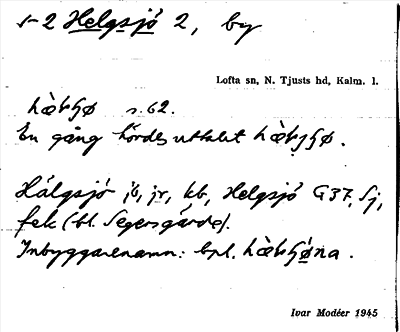 1-2 Helgsjö 2, by
Lofta sn, N. Tjusts hd, Kalm. l.
s. 62.
En gång hördes uttalet
Hälgsjö jb, jr, kb, Helgsjö G 37, Sj,
fek (bl. Segersgärde).
Inbyggarenamn: bpl.
Ivar Modéer 1945